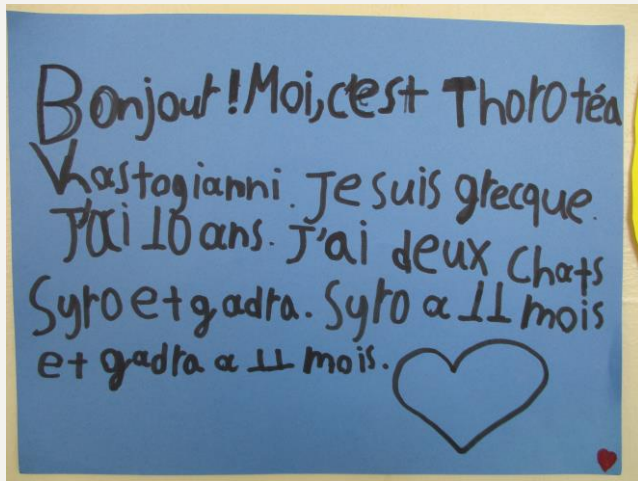 Bonjour! Moi, c'est Thorotéa
Vrastogianni. Je suis grecque.
J'ai 10 ans. J'ai deux chats
Syro et gadra. Syro a 11 mois
et gadra a 11 mois.